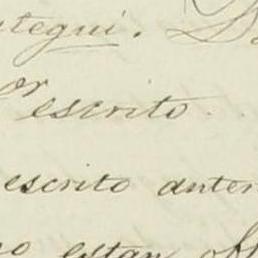 ategui.
or escrito
escrito anter
no estan off